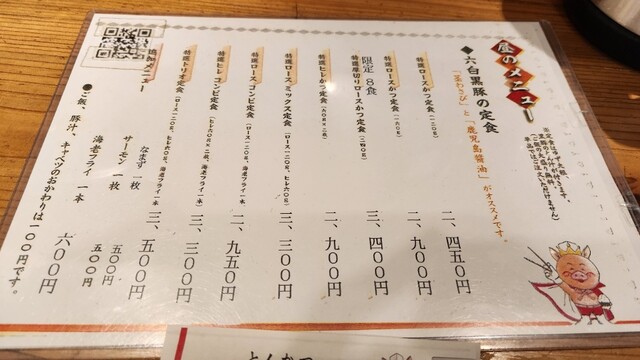 昼のメニュー
※定食はゆず大根、
豚汁、お新香が付きます。
◆六白黒豚の定食
「茎わさび」と「鹿児島醤油」がオススメです。
特選ロースかつ定食(一二〇g) 二、四五〇円
特選ロースかつ定食(一六〇g) 二、九〇〇円
限定8食
特選厚切りロースかつ定食(二四〇g) 三、四〇〇円
特選ヒレかつ定食(六〇g×二枚) 二、九〇〇円
特選ロース、ミックス定食(ロース一二〇g、ヒレ六〇g) 三、三〇〇円
特選ロース、コンビ定食(ロース一二〇g、海老フライ一本) 二、九五〇円
特選ヒレ コンビ定食(ヒレ六〇g×二枚、海老フライ一本) 三、三〇〇円
特選トリオ定食(ロース一二〇g、ヒレ六〇g、海老フライ一本) 三、五〇〇円
追加メニュー
なまず 一枚 五〇〇円
サーモン 一枚 五〇〇円
海老フライ 一本 六〇〇円
●ご飯、豚汁、キャベツのおかわりは一〇〇円です。
とんかつ